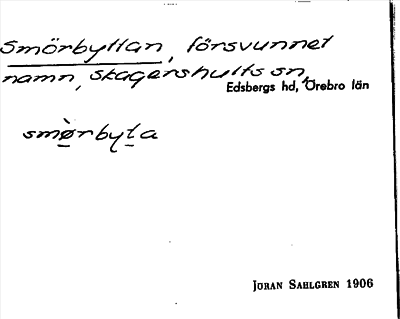 Smörbyttan, försvunnet
namn, Skagershults sn,
Edsbergs hd, Örebro län
smø̀rbyta
JÖRAN SAHLGREN 1906